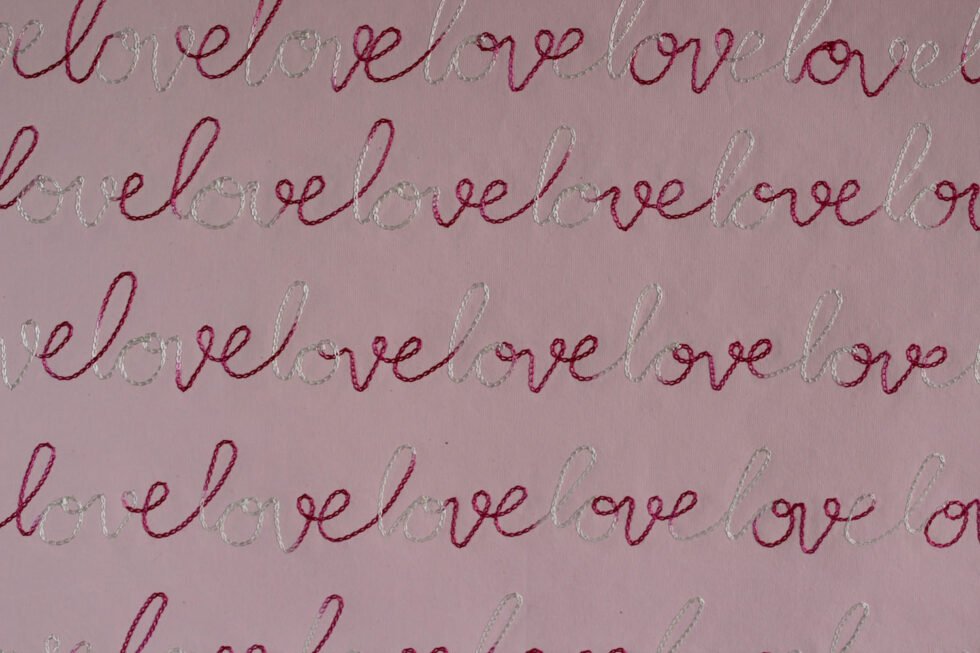 elovelovelovelovelovel
lovelovelovelovelovelov
velovelovelovelovelove
lovelovelovelovelovelov